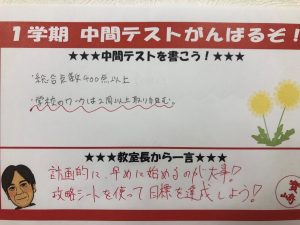 1学期 中間テストがんばるぞ!
★★★中間テストを書こう!★★★
・総合点数400点以上
・学校のワークは2周以上取り組む。
★★★教室長から一言★★★
計画的に、早めに始めるのが大事!
攻略シートを使って目標を達成しよう!!